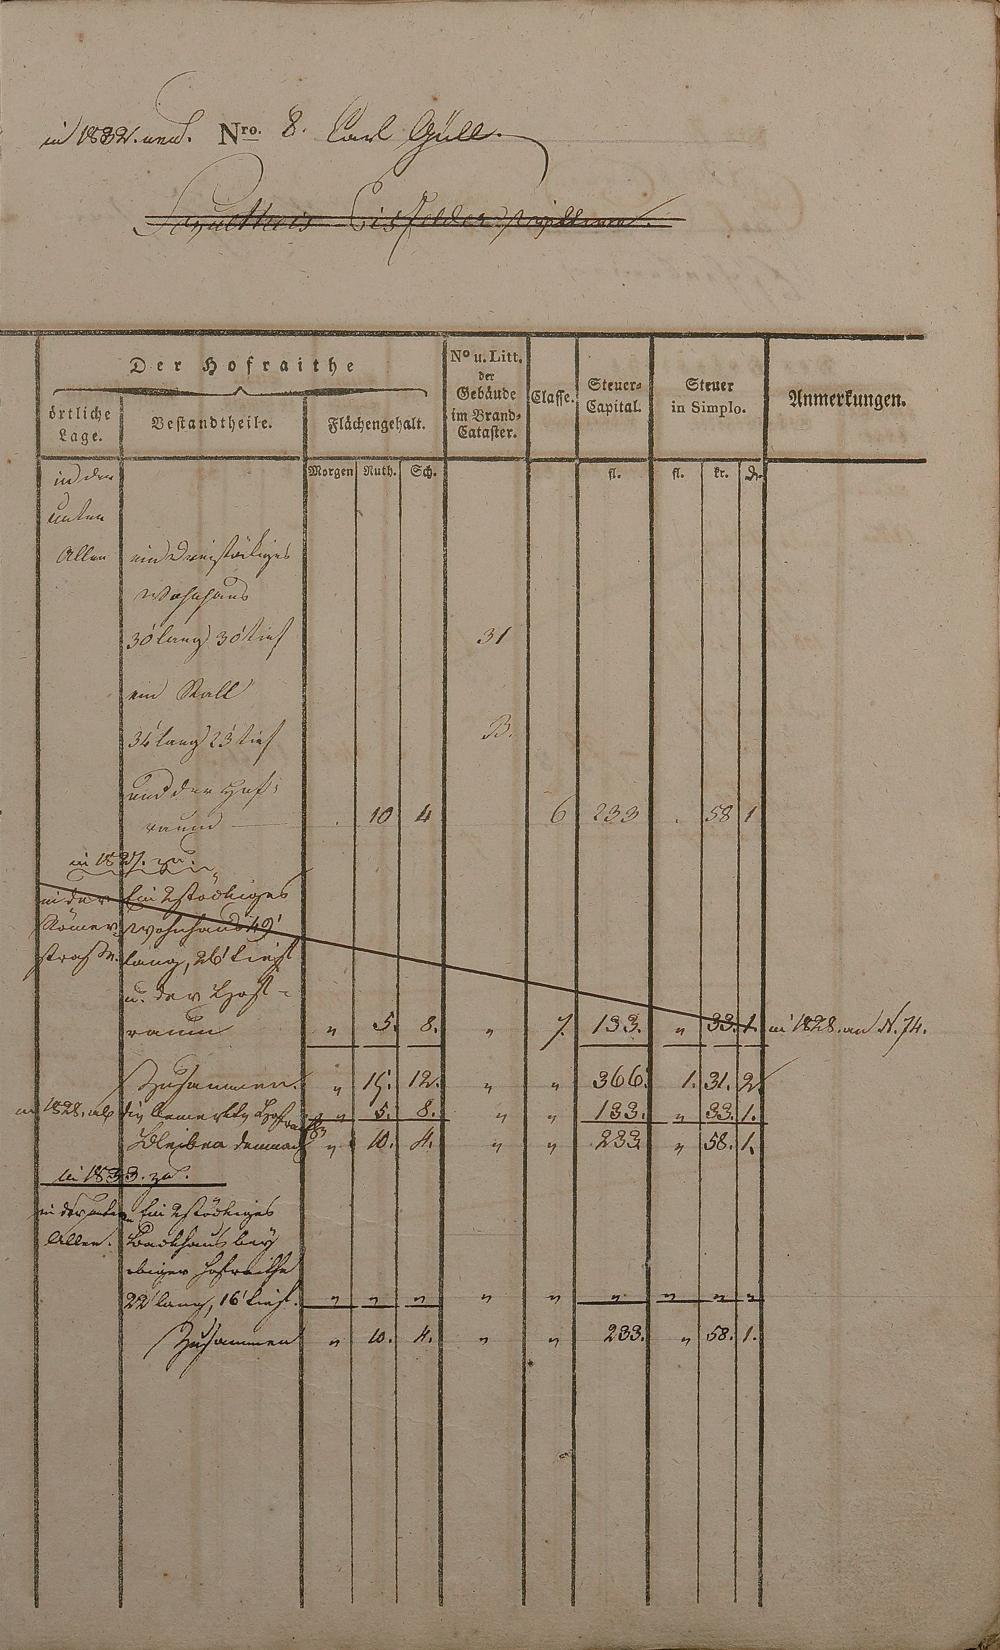 in 1832. neu. Nro. 8. Carl Güll.
Schultheis Eisfelder Wittwe.
Der Hofraithe
örtliche Lage.
Bestandtheile.
Flächengehalt.
No u. Litt. der Gebäude im Brand-Cataster.
Classe.
Steuer-Capital.
Steuer in Simplo.
Anmerkungen.
Morgen Ruth. Sch. fl. fl. kr. d.
in der
unten
Allee ein dreistöckiges
Wohnhaus
30' lang 30' tief 31
ein Stall
34' lang 23' tief B.
und der Hof-
raum . 10 4 6 233 . 58 1
in 1827. zu.
in der Ein 2stöckiges
Römer- Wohnhaus 49'
straße. lang, 26' tief
u. der Hof-
raum " 5. 8. " 7. 133. " 33. 1. in 1828. an N. 74.
Zusammen. " 15. 12. " " 366. 1. 31. 2.
in 1828, ab die bemerkte Hofraithe " 5. 8. " " 133. " 33. 1.
Bleiben demnach " 10. 4. " " 233. " 58. 1.
in 1833. zu.
in der unten Ein 2stöckiges
Allee. Backhaus bey
obiger Hofraithe
22' lang, 16' tief. " " " " " " " " "
Zusammen " 10. 4. " " 233. " 58. 1.